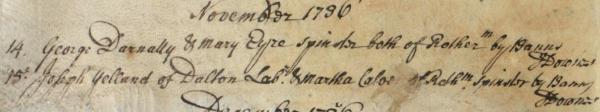 November 1736
14. George Darnally & Mary Eyre spinster both of Rotherm by Banns
JDownes
15t Joseph Yelland of Dalton Labr & Martha Case of Rothm Spinster by Banns
JDownes
December 1736